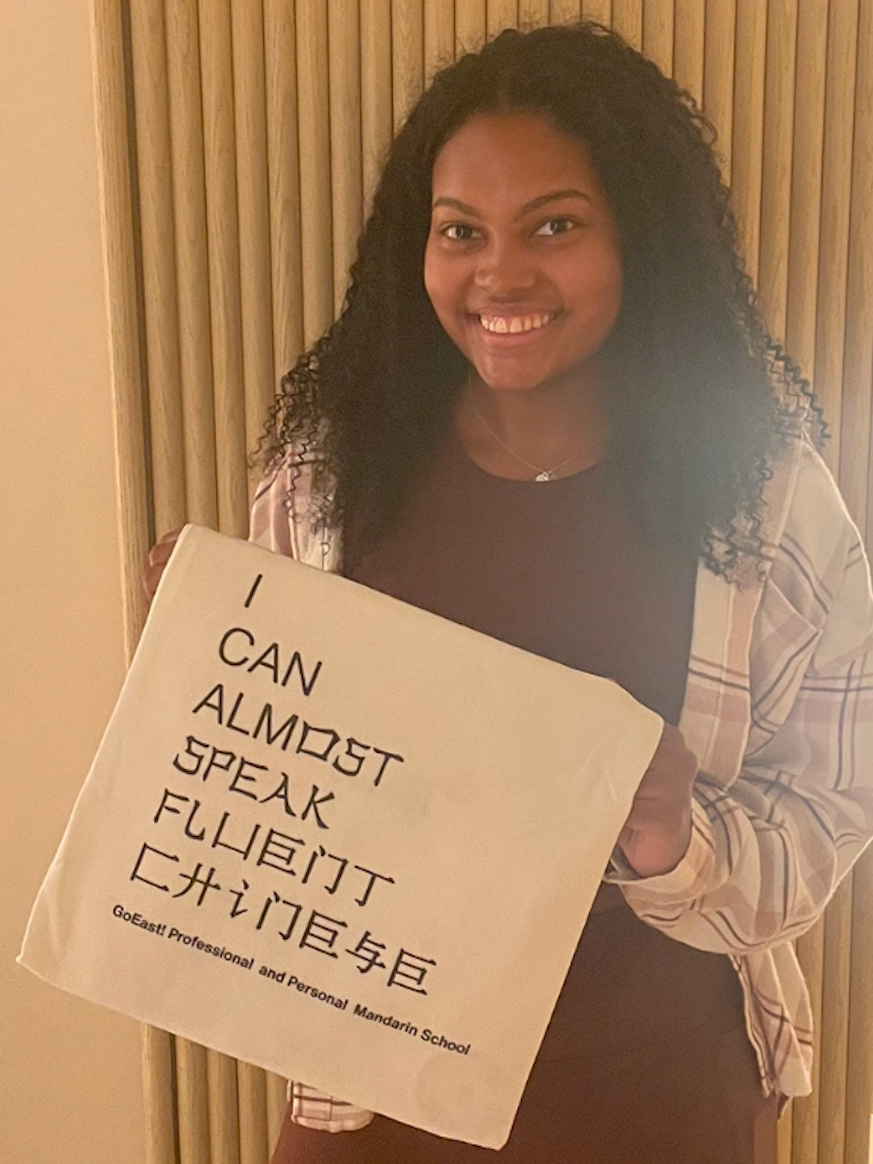 I
CAN
ALMOST
SPEAK
FLUENT
CHINESE
GoEast! Professional and Personal Mandarin School